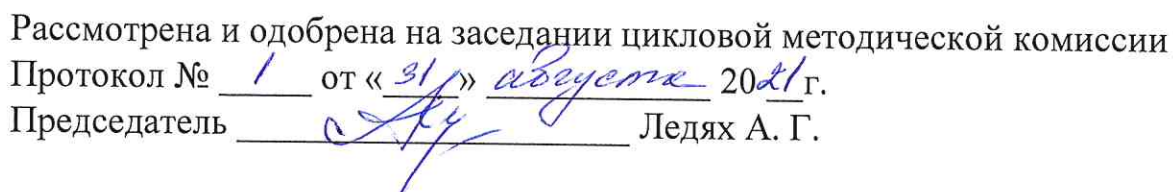 Рассмотрена и одобрена на заседании цикловой методической комиссии
Протокол № 1 от «31» августа 2021г.
Председатель Ледях А. Г.